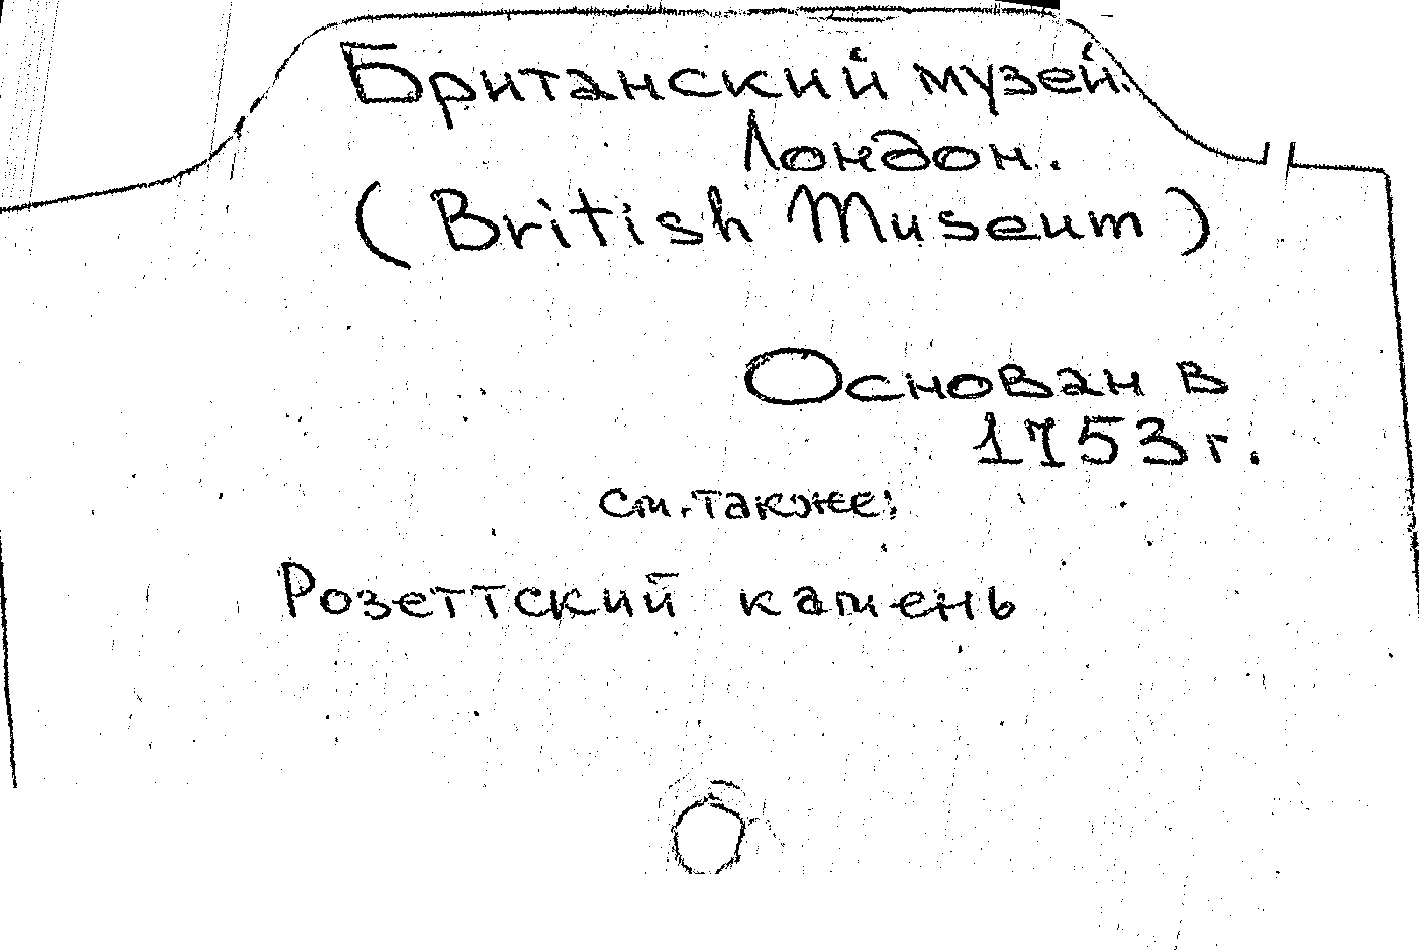 Британский музей.
Лондон.
(British Museum)
Основан в
1753 г.
см. также:
Розеттский камень